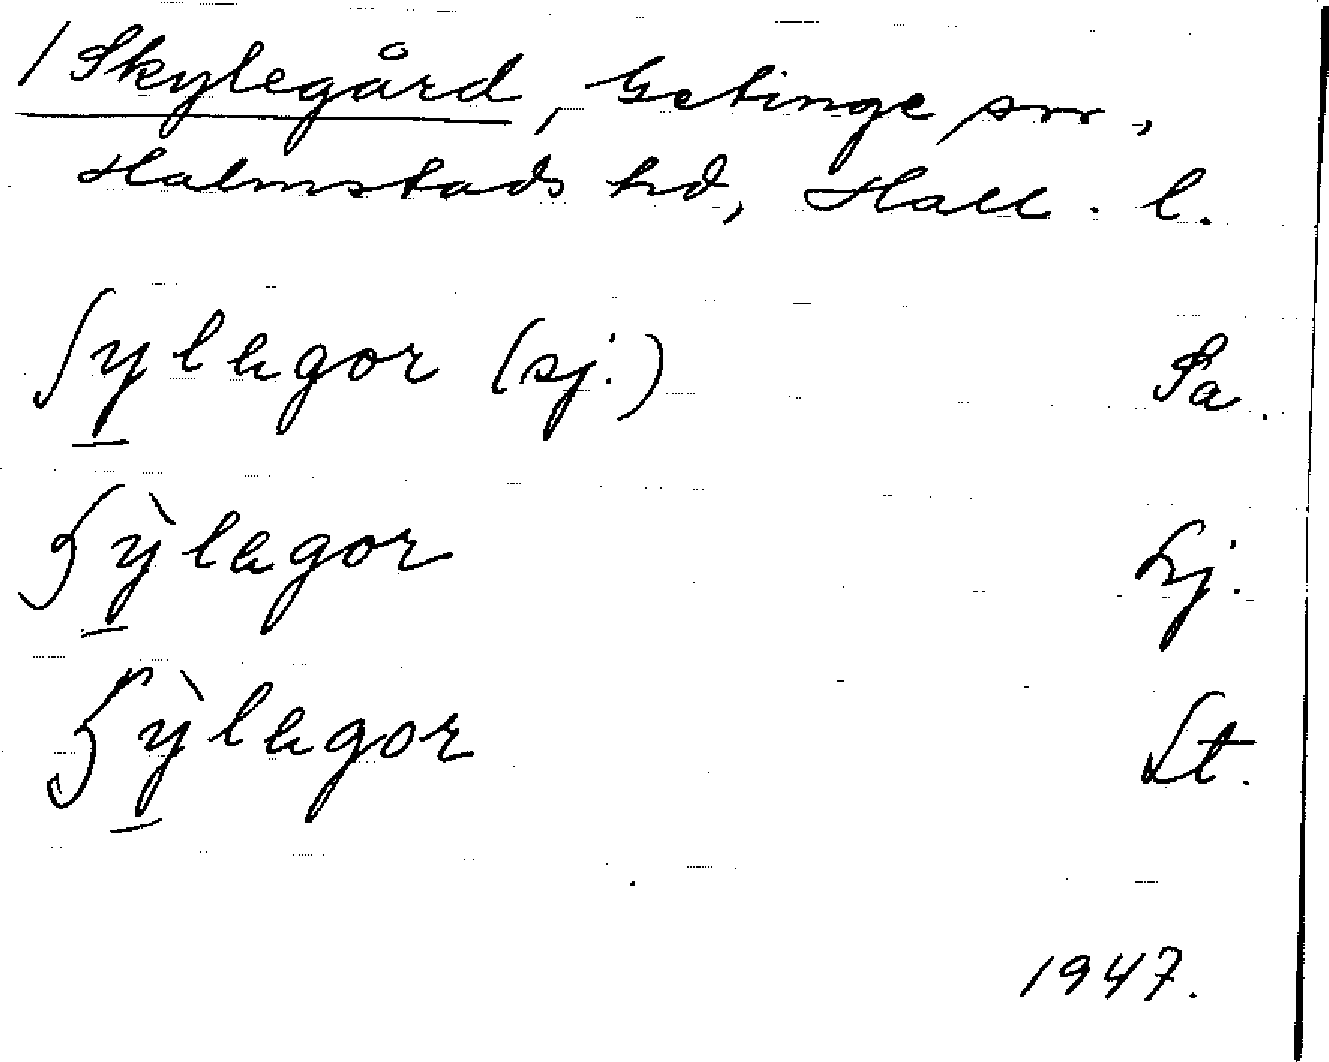 / Skylegård, Getinge srr,
Halmstads hd, Hall. l.
ʃylegor (sj.) Sa.
ỳlegor Lj.
ỳlegor St.
1947.